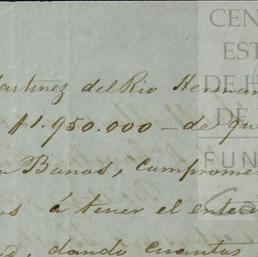 CEN
EST
DE H
DE
FUN
Martinez del Rio Herman
$1.950.000 — de que
Banos, comprome
os á tener el entera
dando cuentas